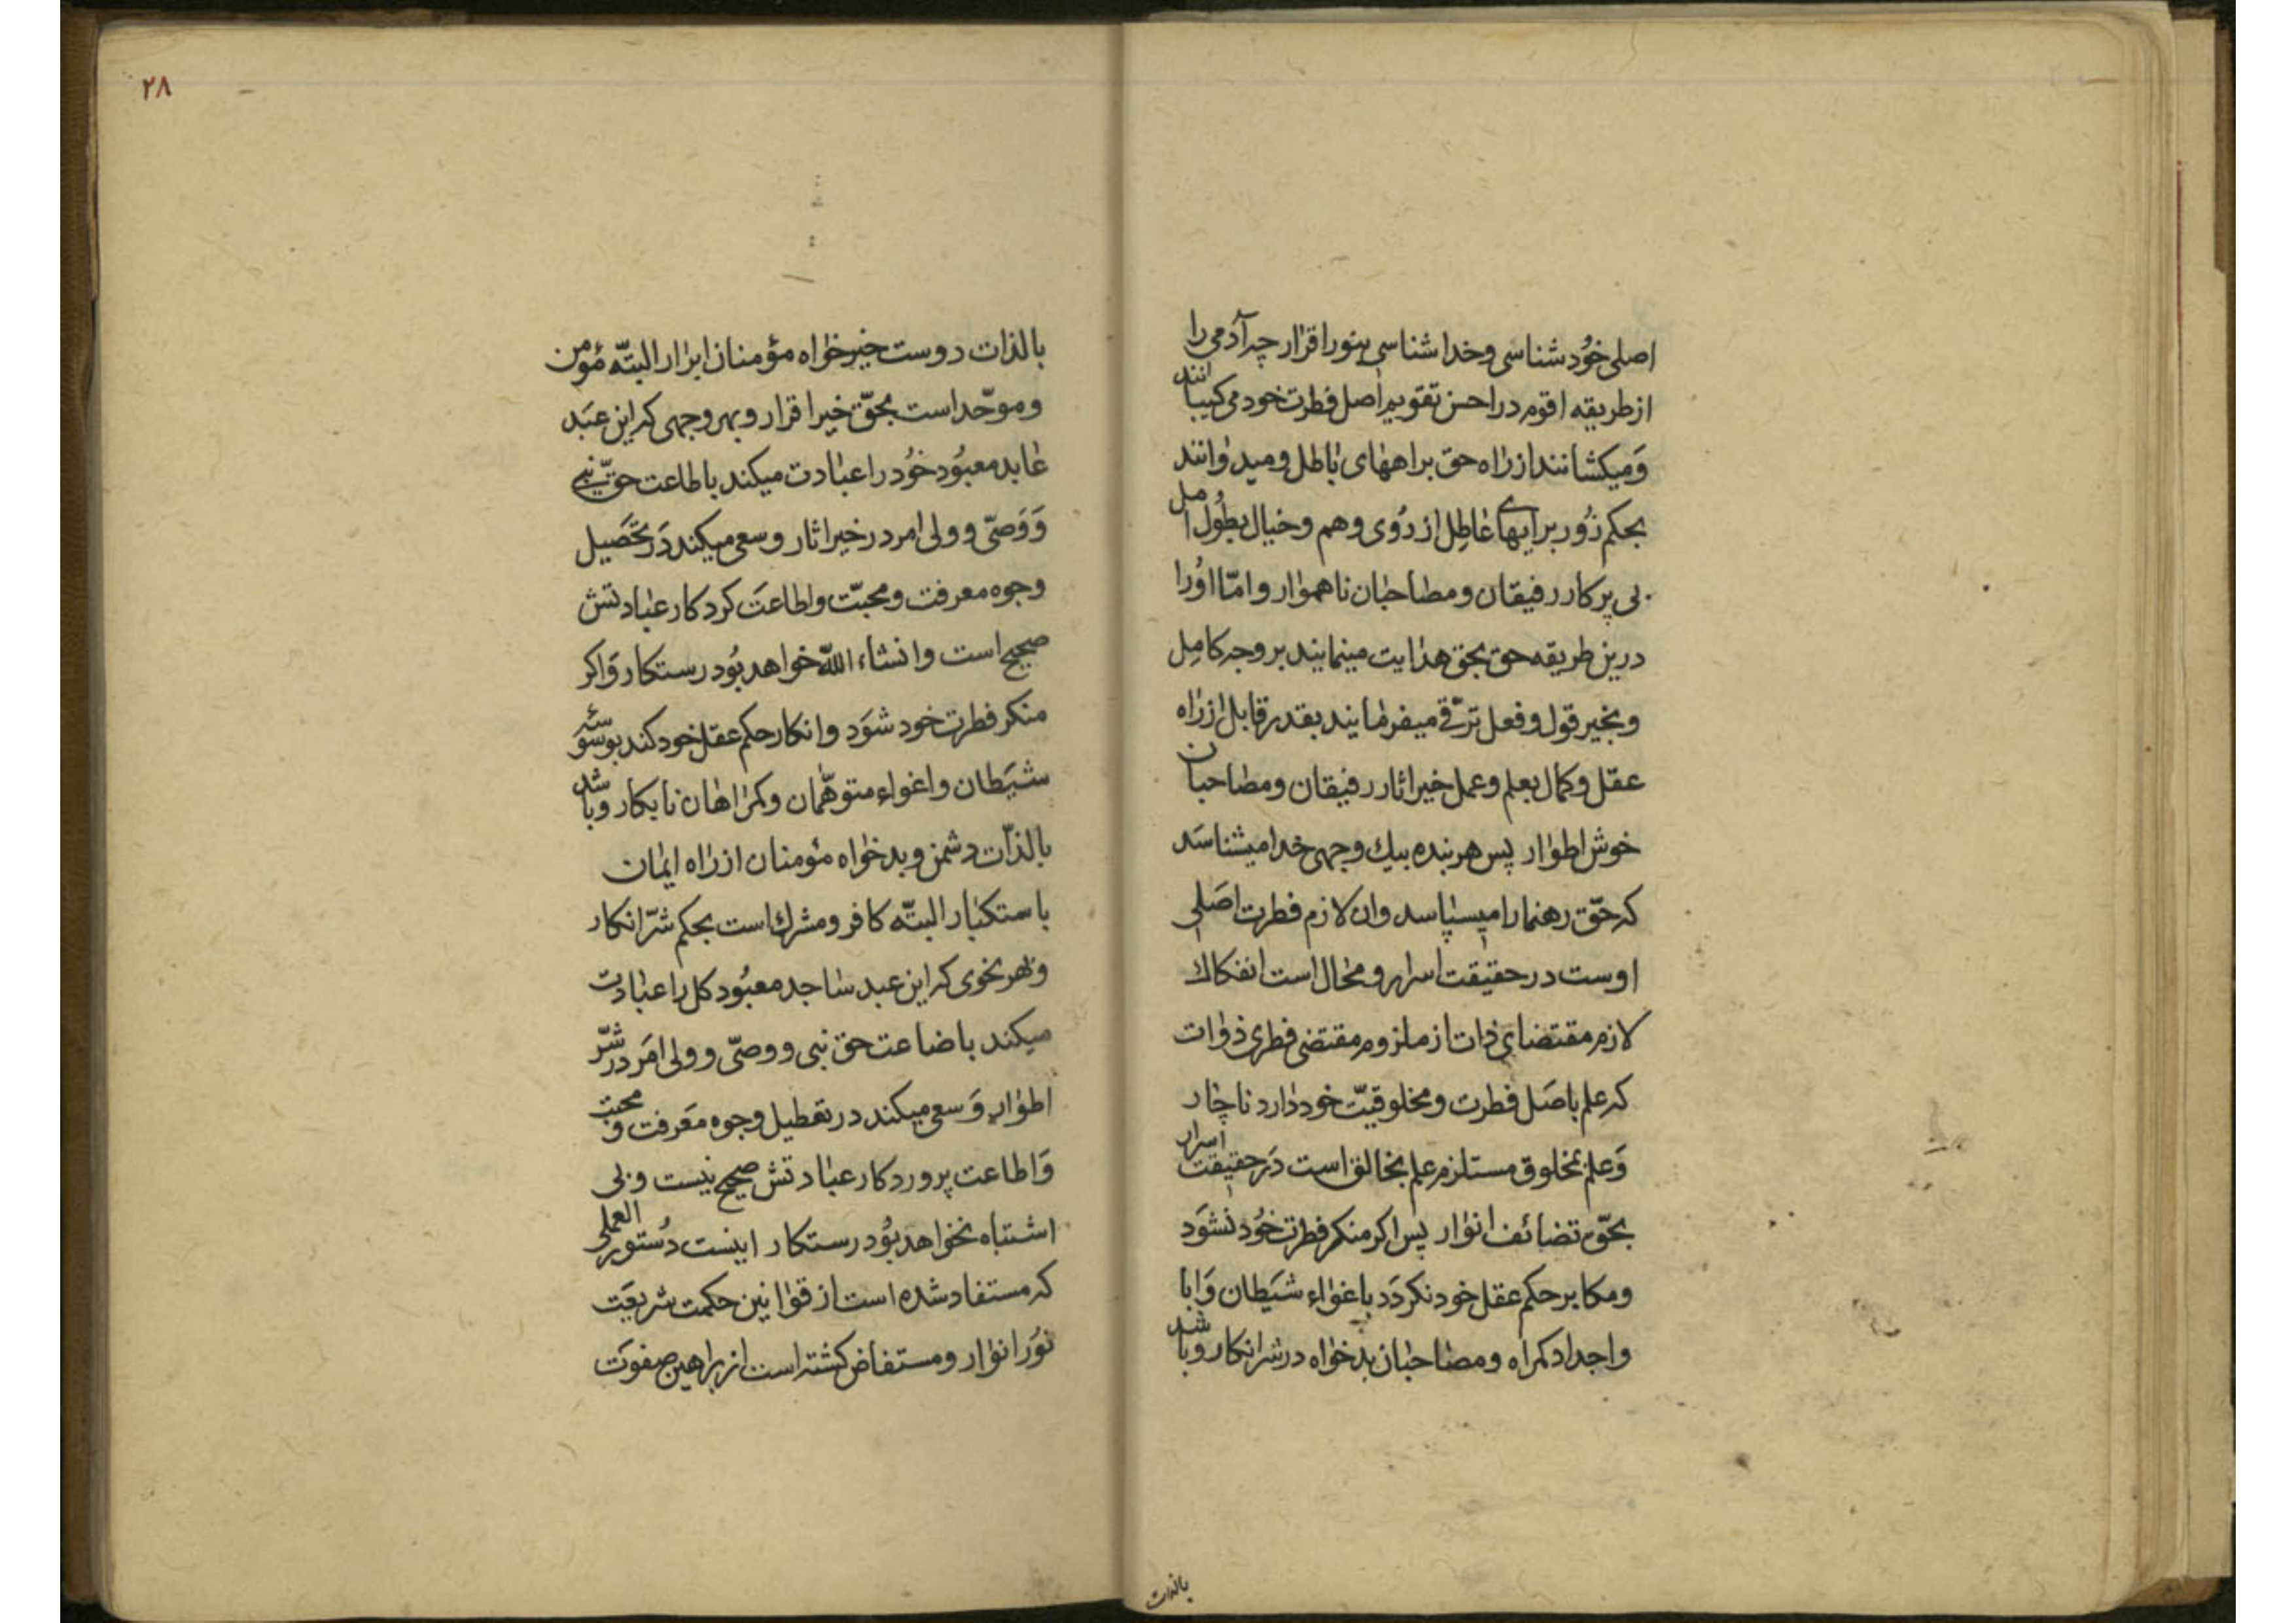 اصلی خود شناسی و خدا شناسی بنور اقرار چه آدمی را
از طریقه اقوم در احسن تقویم اصل فطرت خود می کیبانند
و میکشانند از راه حق براههای باطل و میدوانند
بحکم زور برایهای عاطل از روی وهم و خیال بطول امل
بی پرکار رفیقان و مصاحبان ناهموار و امّا او را
درین طریقه حق بحق هدایت مینمایند بر وجه کامل
و بخیر قول و فعل ترقی میفرمایند بقدر قابل از راه
عقل و کمال بعلم و عمل خیر اثار رفیقان و مصاحبان
خوش اطوار پس هر بنده بیك وجهی خدا میشناسد
که حقّ رهنما را میسپاسد و ان لازم فطرت اصلی
اوست در حقیقت اسرار و محال است انفکاك
لازم مقتضای ذات از ملزوم مقتضی فطری ذوات
که علم باصل فطرت و مخلوقیّت خود دارد ناچار
و علم بمخلوق مستلزم علم بخالق است در حقیقت اسرار
بحقّ تضائف انوار پس اکر منکر فطرت خود نشود
و مکابر حکم عقل خود نکردد باغواء شیطان و ابا
و اجداد کمراه و مصاحبان بدخواه در شر انکار و باشد
بالذات
۲۸
بالذات دوست خیر خواه مؤمنان ابرار البتّه مؤمن
و موحّد است بحقّ خیر اقرار و بهر وجهی که این عبد
عابد معبود خود را عبادت میکند باطاعت حقّ نبی
و وصیّ و ولی امر در خیر اثار و سعی میکند در تحصیل
وجوه معرفت و محبّت و اطاعت کردکار عبادتش
صحیح است و انشاء الله خواهد بود رستکار و اکر
منکر فطرت خود شود و انکار حکم عقل خود کند بوسوسه
شیطان و اغواء متوهّمان و کمراهان نابکار و باشد
بالذّات دشمن و بدخواه مؤمنان از راه ایمان
باستکبار البتّه کافر و مشرك است بحکم شرّ انکار
و بهر نحوی که این عبد ساجد معبود کل را عبادت
میکند باضاعت حق نبی و وصیّ و ولی امر در شرّ
اطوار و سعی میکند در تعطیل وجوه معرفت و محبت
و اطاعت پروردکار عبادتش صحیح نیست و بی
اشتباه نخواهد بود رستکار اینست دستور العملی
که مستفاد شده است از قوانین حکمت شریعت
نور انوار و مستفاض کشته است از براهین صفوت